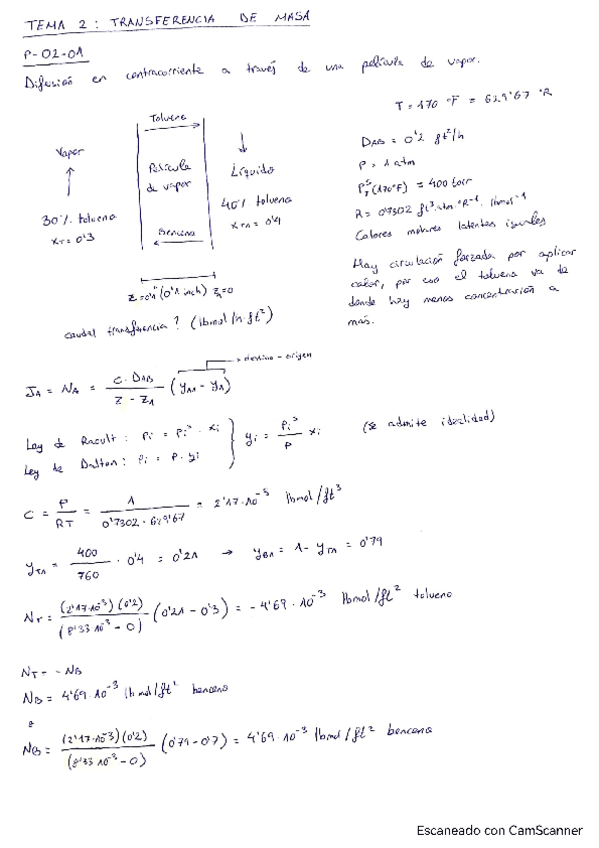 TEMA 2: TRANSFERENCIA DE MASA
P-02-01
Difusión en contracorriente a través de una película de vapor.
T = 170 °F = 629'67 °R
Tolueno
Vapor
Película de vapor
Líquido
30% tolueno
xT = 0'3
40% tolueno
xTA = 0'4
Benceno
z = 0'1" (0'1 inch) z1 = 0
DAB = 0'2 ft²/h
P = 1 atm
PTS (170°F) = 400 torr
R = 0'7302 ft³·atm·°R⁻¹·lbmol⁻¹
Calores molares latentes iguales
Hay circulación forzada por aplicar
calor, por eso el tolueno va de
donde hay menos concentración a
más.
caudal transferencia? (lbmol/h·ft²)
destino - origen
JA = NA = C·DAB / (z - z1) (yA1 - yA)
Ley de Raoult: Pi = Pis · xi
Ley de Dalton: Pi = P·yi
yi = Pis / P xi (se admite idealidad)
C = P / RT = 1 / (0'7302 · 629'67) = 2'17·10⁻³ lbmol/ft³
yTA = 400 / 760 · 0'4 = 0'21 → yBA = 1 - yTA = 0'79
NT = (2'17·10⁻³)(0'2) / (8'33·10⁻³ - 0) (0'21 - 0'3) = -4'69·10⁻³ lbmol/ft² tolueno
NT = - NB
NB = 4'69·10⁻³ lbmol/ft² benceno
NB = (2'17·10⁻³)(0'2) / (8'33·10⁻³ - 0) (0'79 - 0'7) = 4'69·10⁻³ lbmol/ft² benceno
Escaneado con CamScanner